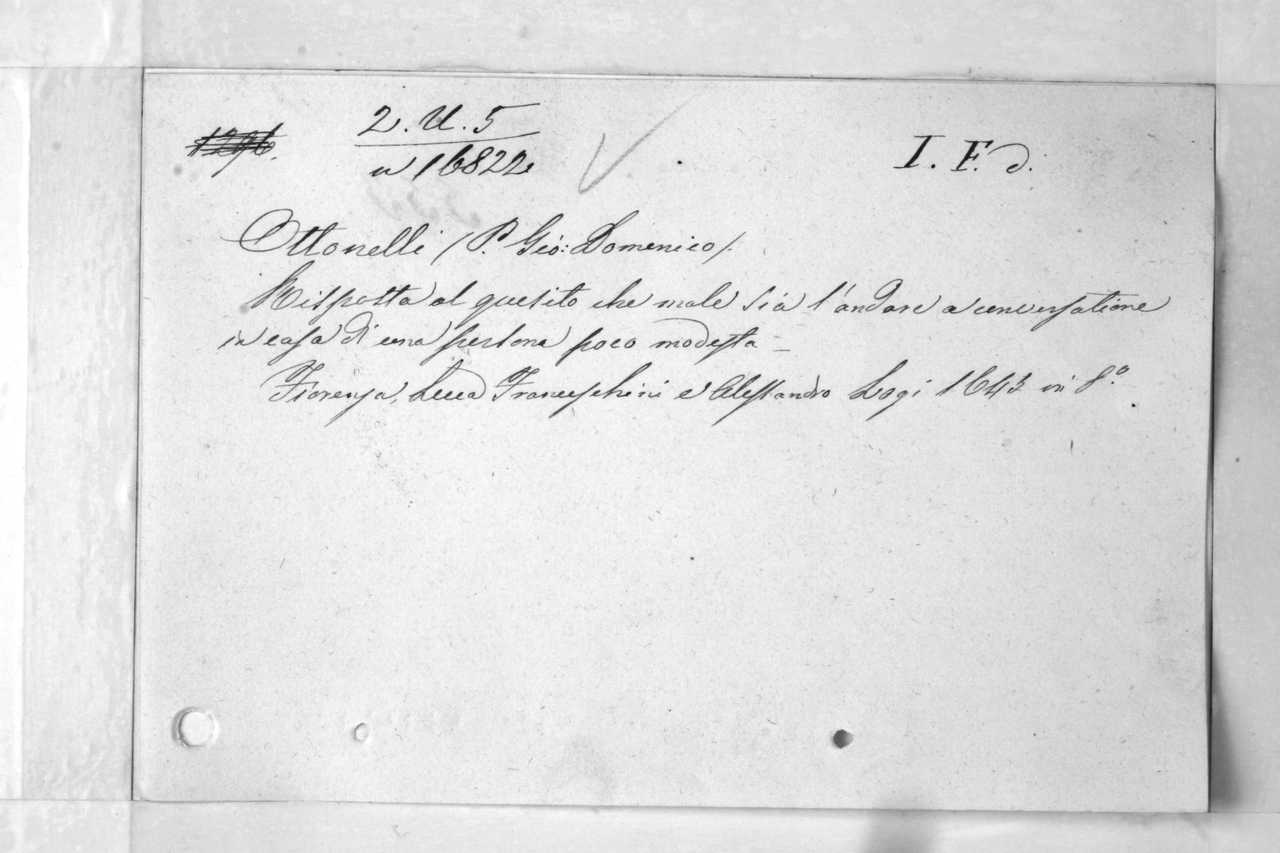 2. U. 5
n 16822
I. F. d.
Ottonelli (P. Gio: Domenico).
Risposta al quesito che male sia l'andare a conversatione
in casa di una persona poco modesta –
Fiorenza, Luca Franceschini e Alessandro Logi 1643 in 8.º